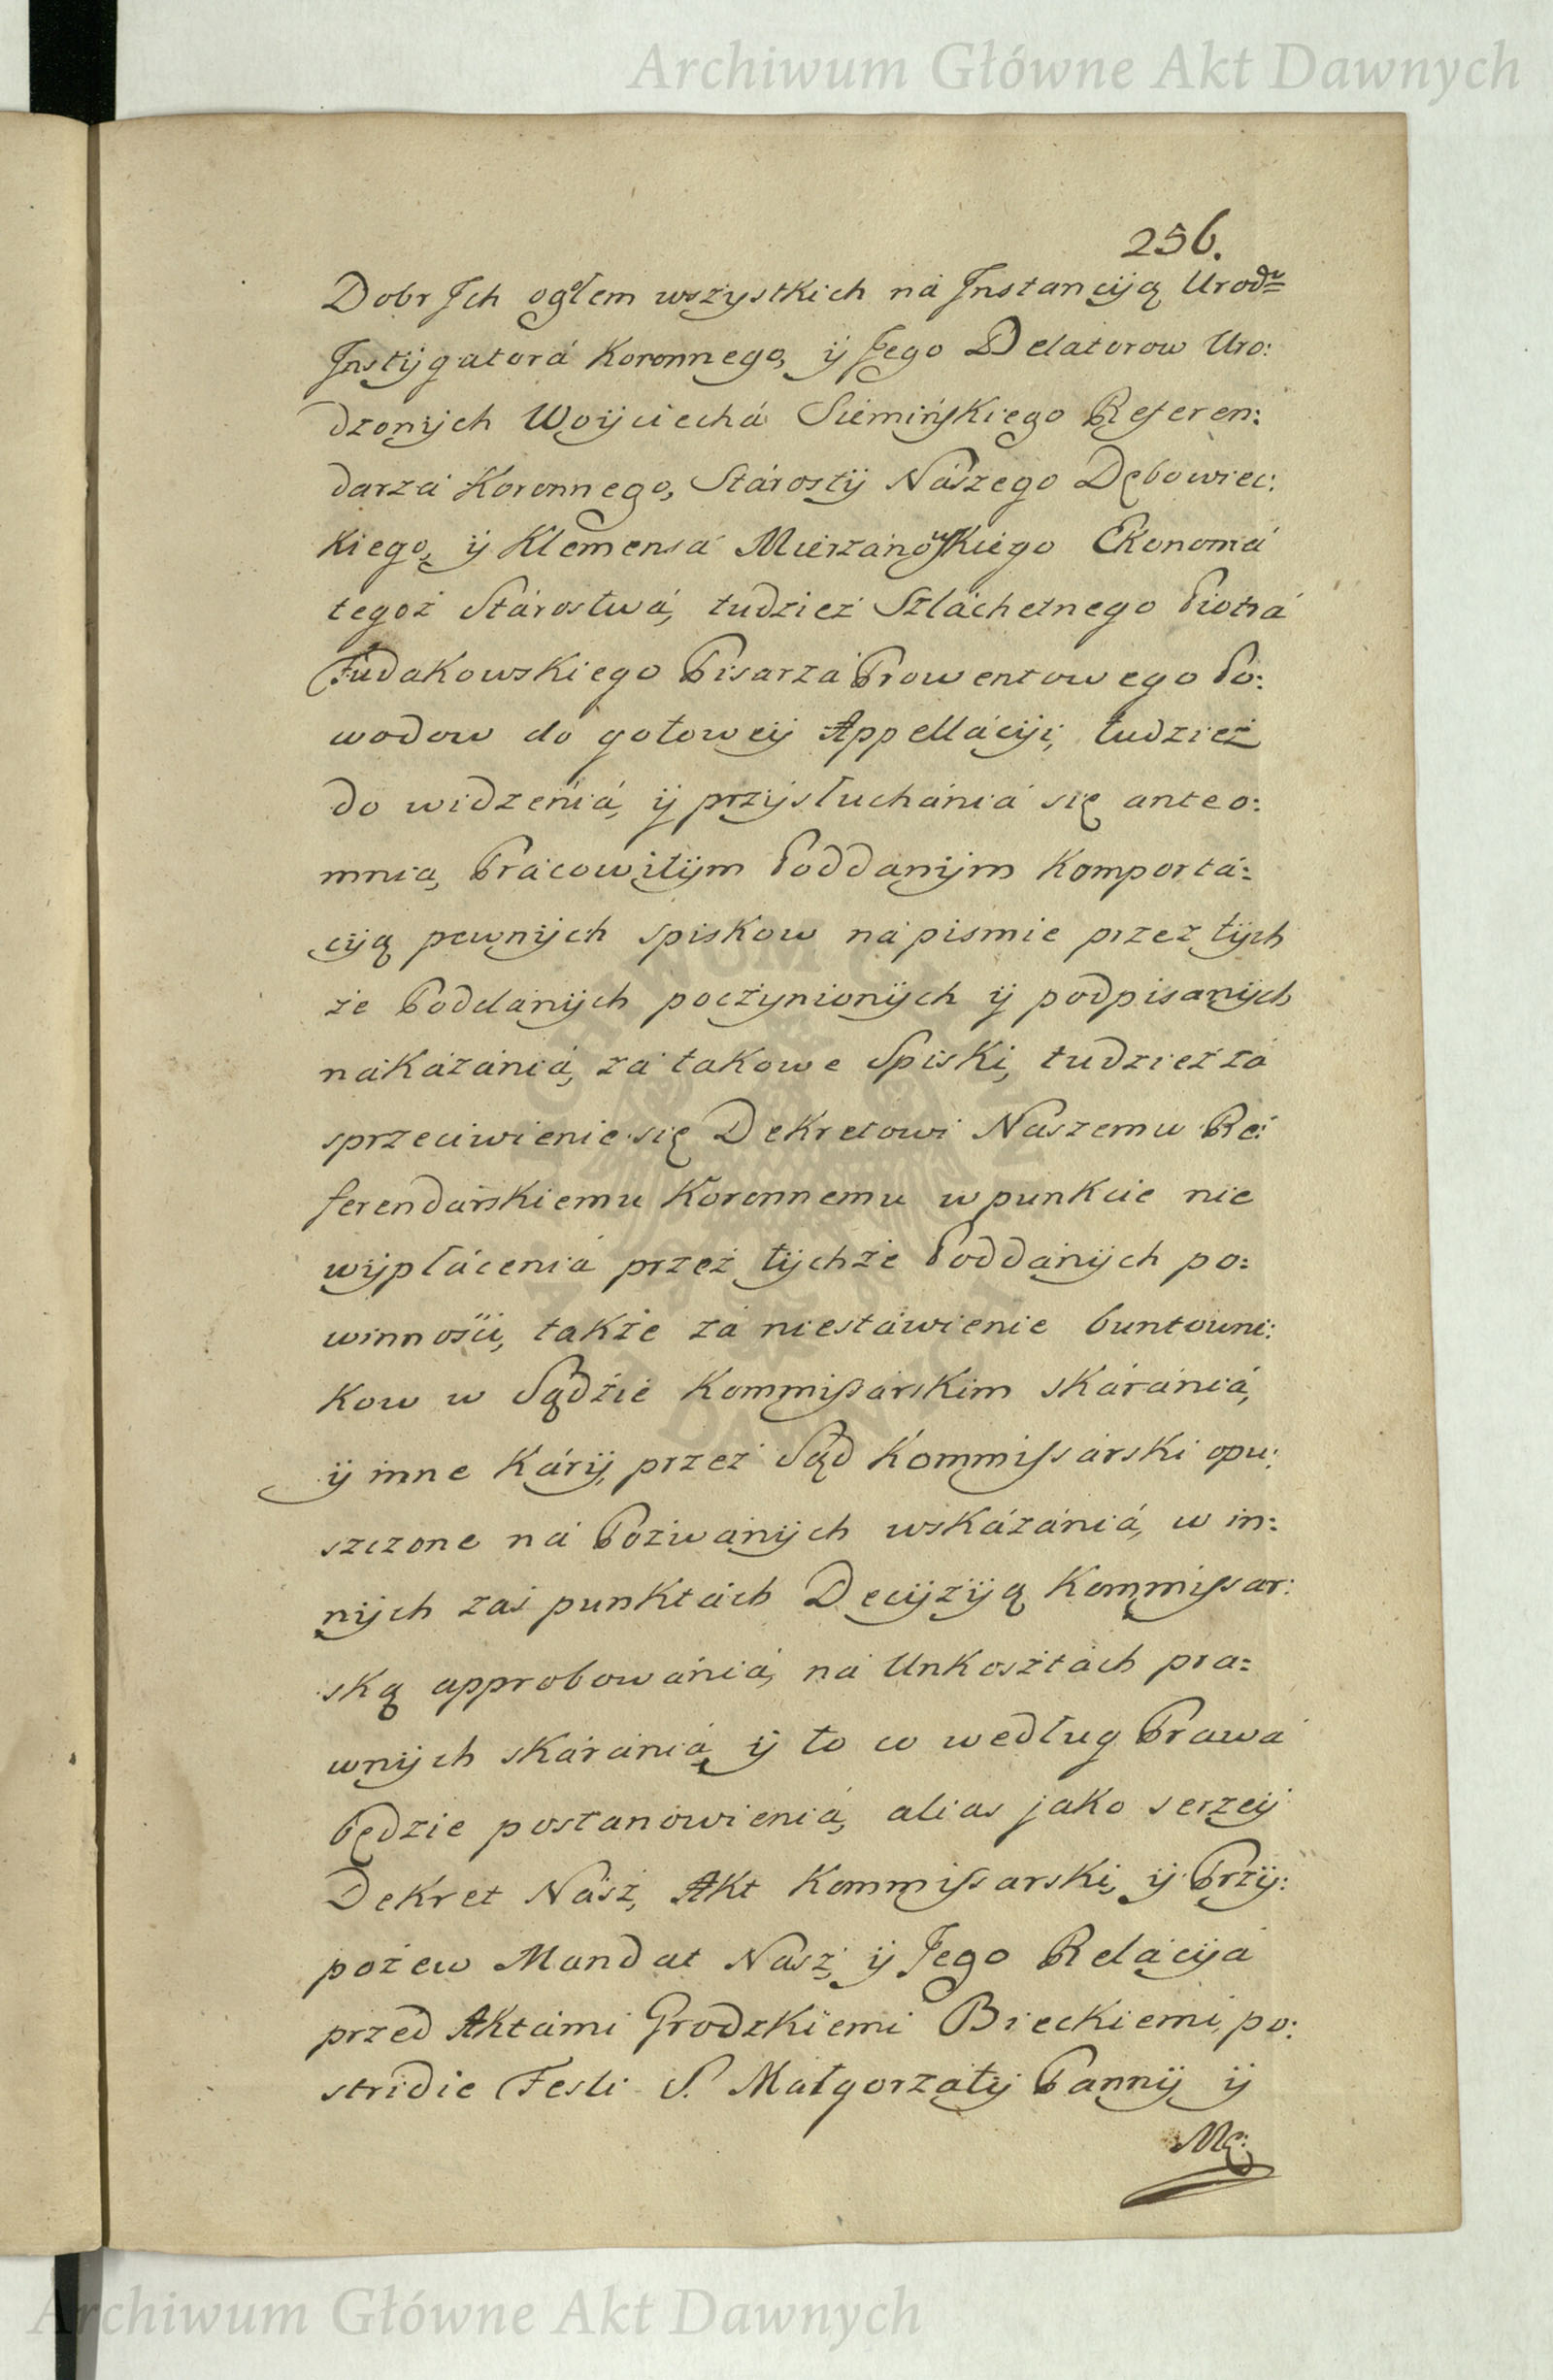 Archiwum Główne Akt Dawnych
256.
Dobr Jch ogołem wszystkich ná Jnstancyią Urodu=
Jnstygatorá Koronnego, ÿ Jego Delatorow Uro:
dzonÿch Woÿciechá Siemińskiego Referen:
darzá Koronnego, Stárostÿ Nászego Dębowiec:
kiego, ÿ Klemensá Mierzánowskiego Ekonomá
tegoż Stárostwá, tudzież Szláchetnego Piotrá
Fudakowskiego Pisarzá Prowentowego Po:
wodow do gotoweÿ Appelláciÿi, tudzież
do widzeniá, ÿ przÿsłuchániá się anteo:
mnia, Prácowitÿm Poddanÿm Komportá:
ciÿą pewnÿch spiskow ná pismie przez tÿch
że Poddánÿch poczÿnionÿch ÿ podpisanÿch
nákázániá, zá takowe Spiski, tudzież zá
sprzeciwienie się Dekretowi Naszemu Re:
ferendárskiemu Koronnemu w punkcie nie
wÿpłáceniá przez tÿchże Poddánÿch po:
winności, także zá niestáwienie buntowni:
kow w Sądzie Kommissárskim skárániá,
ÿ inne kárÿ, przez Sąd Kommissárski opu:
szczone ná Pozwánÿch wskázániá, w in:
nÿch zaś punktách Decÿzÿą Kommissar:
ską approbowániá, ná Unkosztách pra:
wnÿch skárániá, ÿ to co według Prawá
będzie postánowieniá, alias jako serzeÿ
Dekret Násż, Akt Kommissarski, ÿ Przÿ:
pozew Mandat Nasz, ÿ Jego Relácÿá
przed Aktámi Grodzkiemi Bieckiemi, po:
stridie Festi S. Małgorzatÿ Pannÿ ÿ
Mę:
Archiwum Główne Akt Dawnych